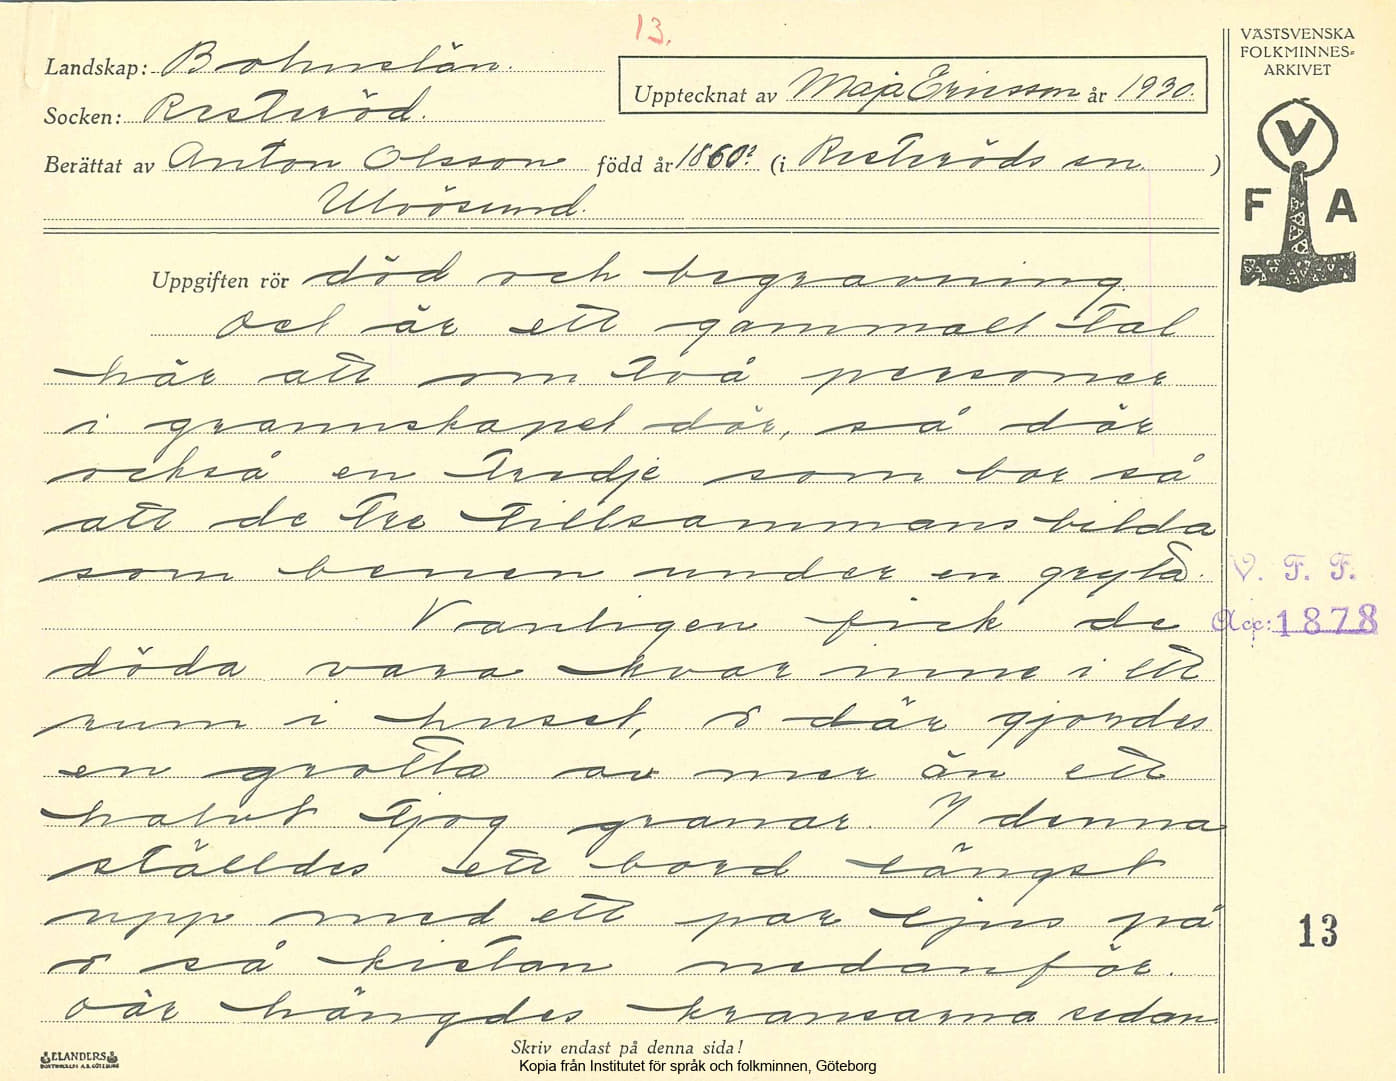 13.
VÄSTSVENSKA
FOLKMINNES-
ARKIVET
Landskap: Bohuslän.
Upptecknat av Maja Ericsson år 1930.
Socken: Resteröd.
Berättat av Anton Olsson född år 1860? (i Resteröds sn. )
Ulvösund.
V
F A
Uppgiften rör död och begravning
Det är ett gammalt tal
här att om två personer
i grannskapet dör, så dör
också en tredje som bor så
att de tre tillsammans bilda
som benen under en gryta.
V. F. F.
Vanligen fick de
Acc: 1878
döda vara kvar inne i ett
rum i huset, o där gjordes
en grotta av mer än ett
halvt tjog granar. I denna
ställdes ett bord längst
upp med ett par ljus på
13
o så kistan nedanför.
Där hängdes kransarna sedan.
Skriv endast på denna sida!
ELANDERS
Kopia från Institutet för språk och folkminnen, Göteborg